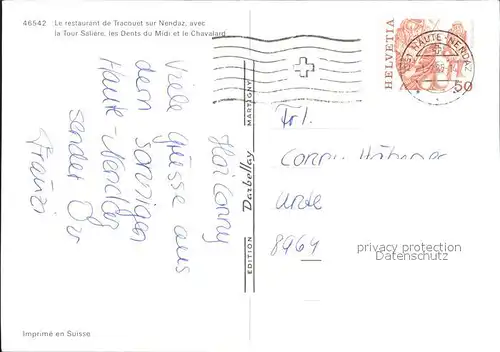 46542 Le restaurant de Tracouet sur Nendaz, avec
la Tour Salière, les Dents du Midi et le Chavalard
HELVETIA
50
HAUTE-NENDAZ
Hoi Conny
Viele Grüsse aus
dem sonnigen
Haute-Nendaz
sendet Dir
Franzi
EDITION Darbellay MARTIGNY
Frl.
Conny
8964
privacy protection
Datenschutz
Imprimé en Suisse